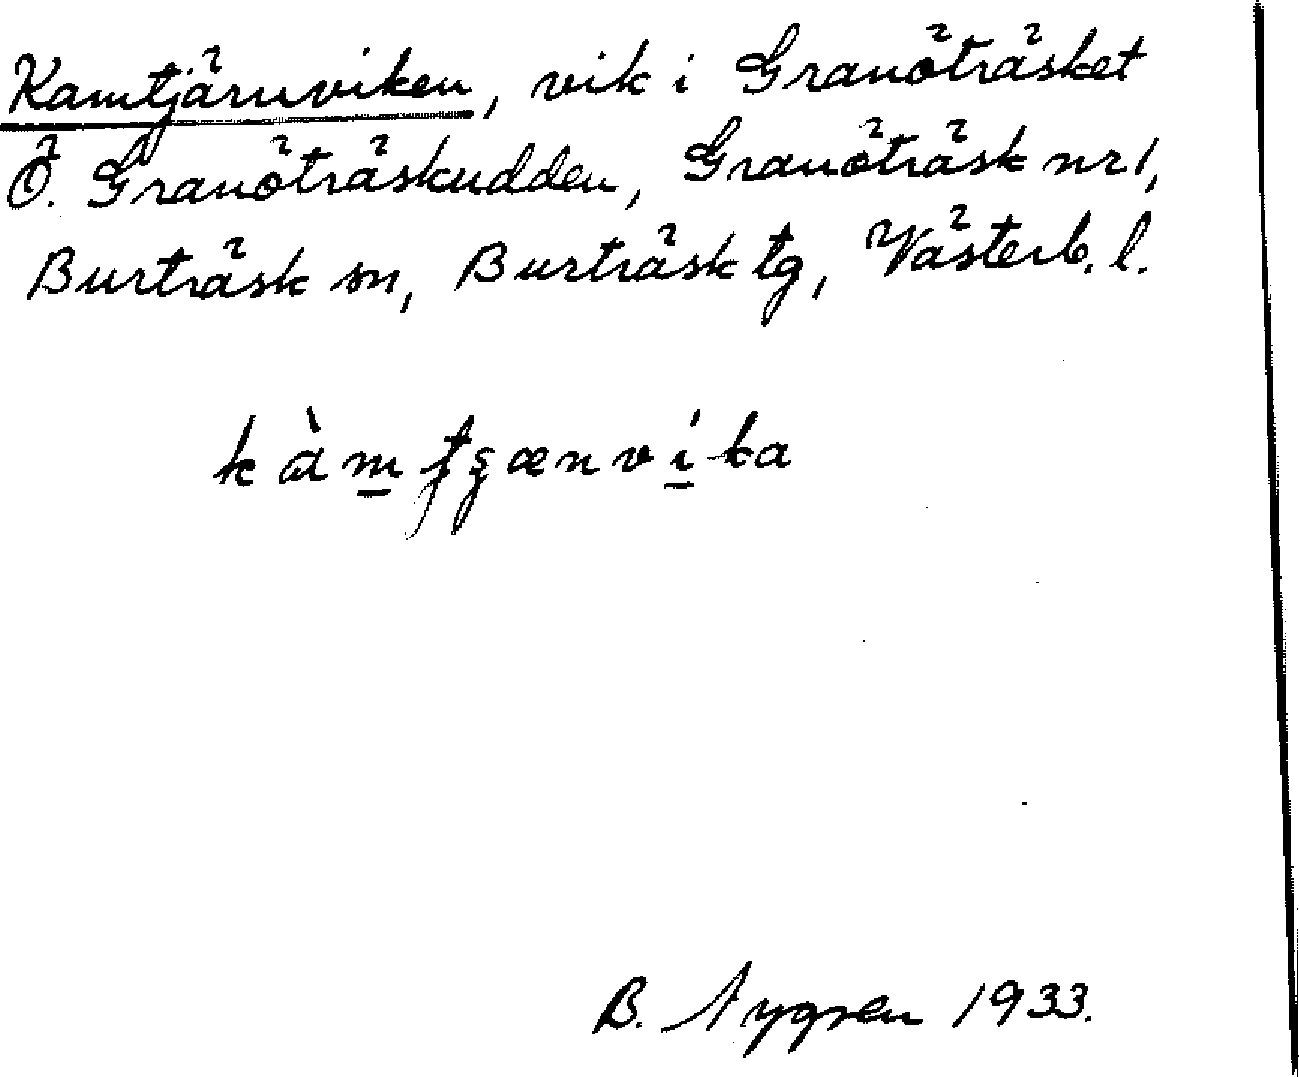 Kamtjärnviken, vik i Granöträsket
Ö. Granöträskudden, Granöträsk nr 1,
Burträsk sn, Burträsk tg, Västerb. l.
B. Nygren 1933.